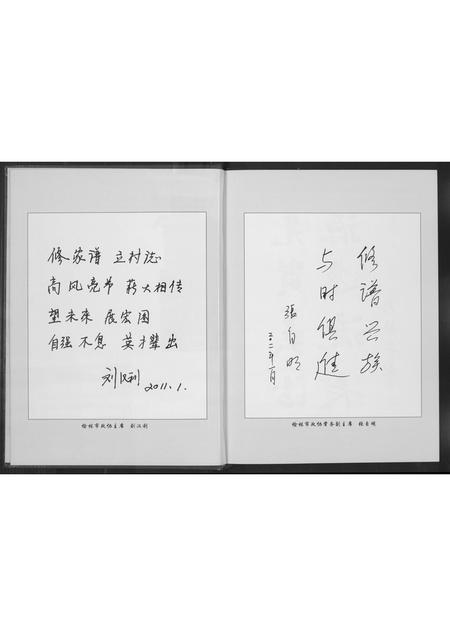 修家谱 立村志
高风亮节 薪火相传
望未来 展宏图
自强不息 英才辈出
刘汉利 2011.1.
榆林市政协主席 刘汉利
修谱兴族
与时俱进
张自明
二〇一一年一月
榆林市政协常务副主席 张自明